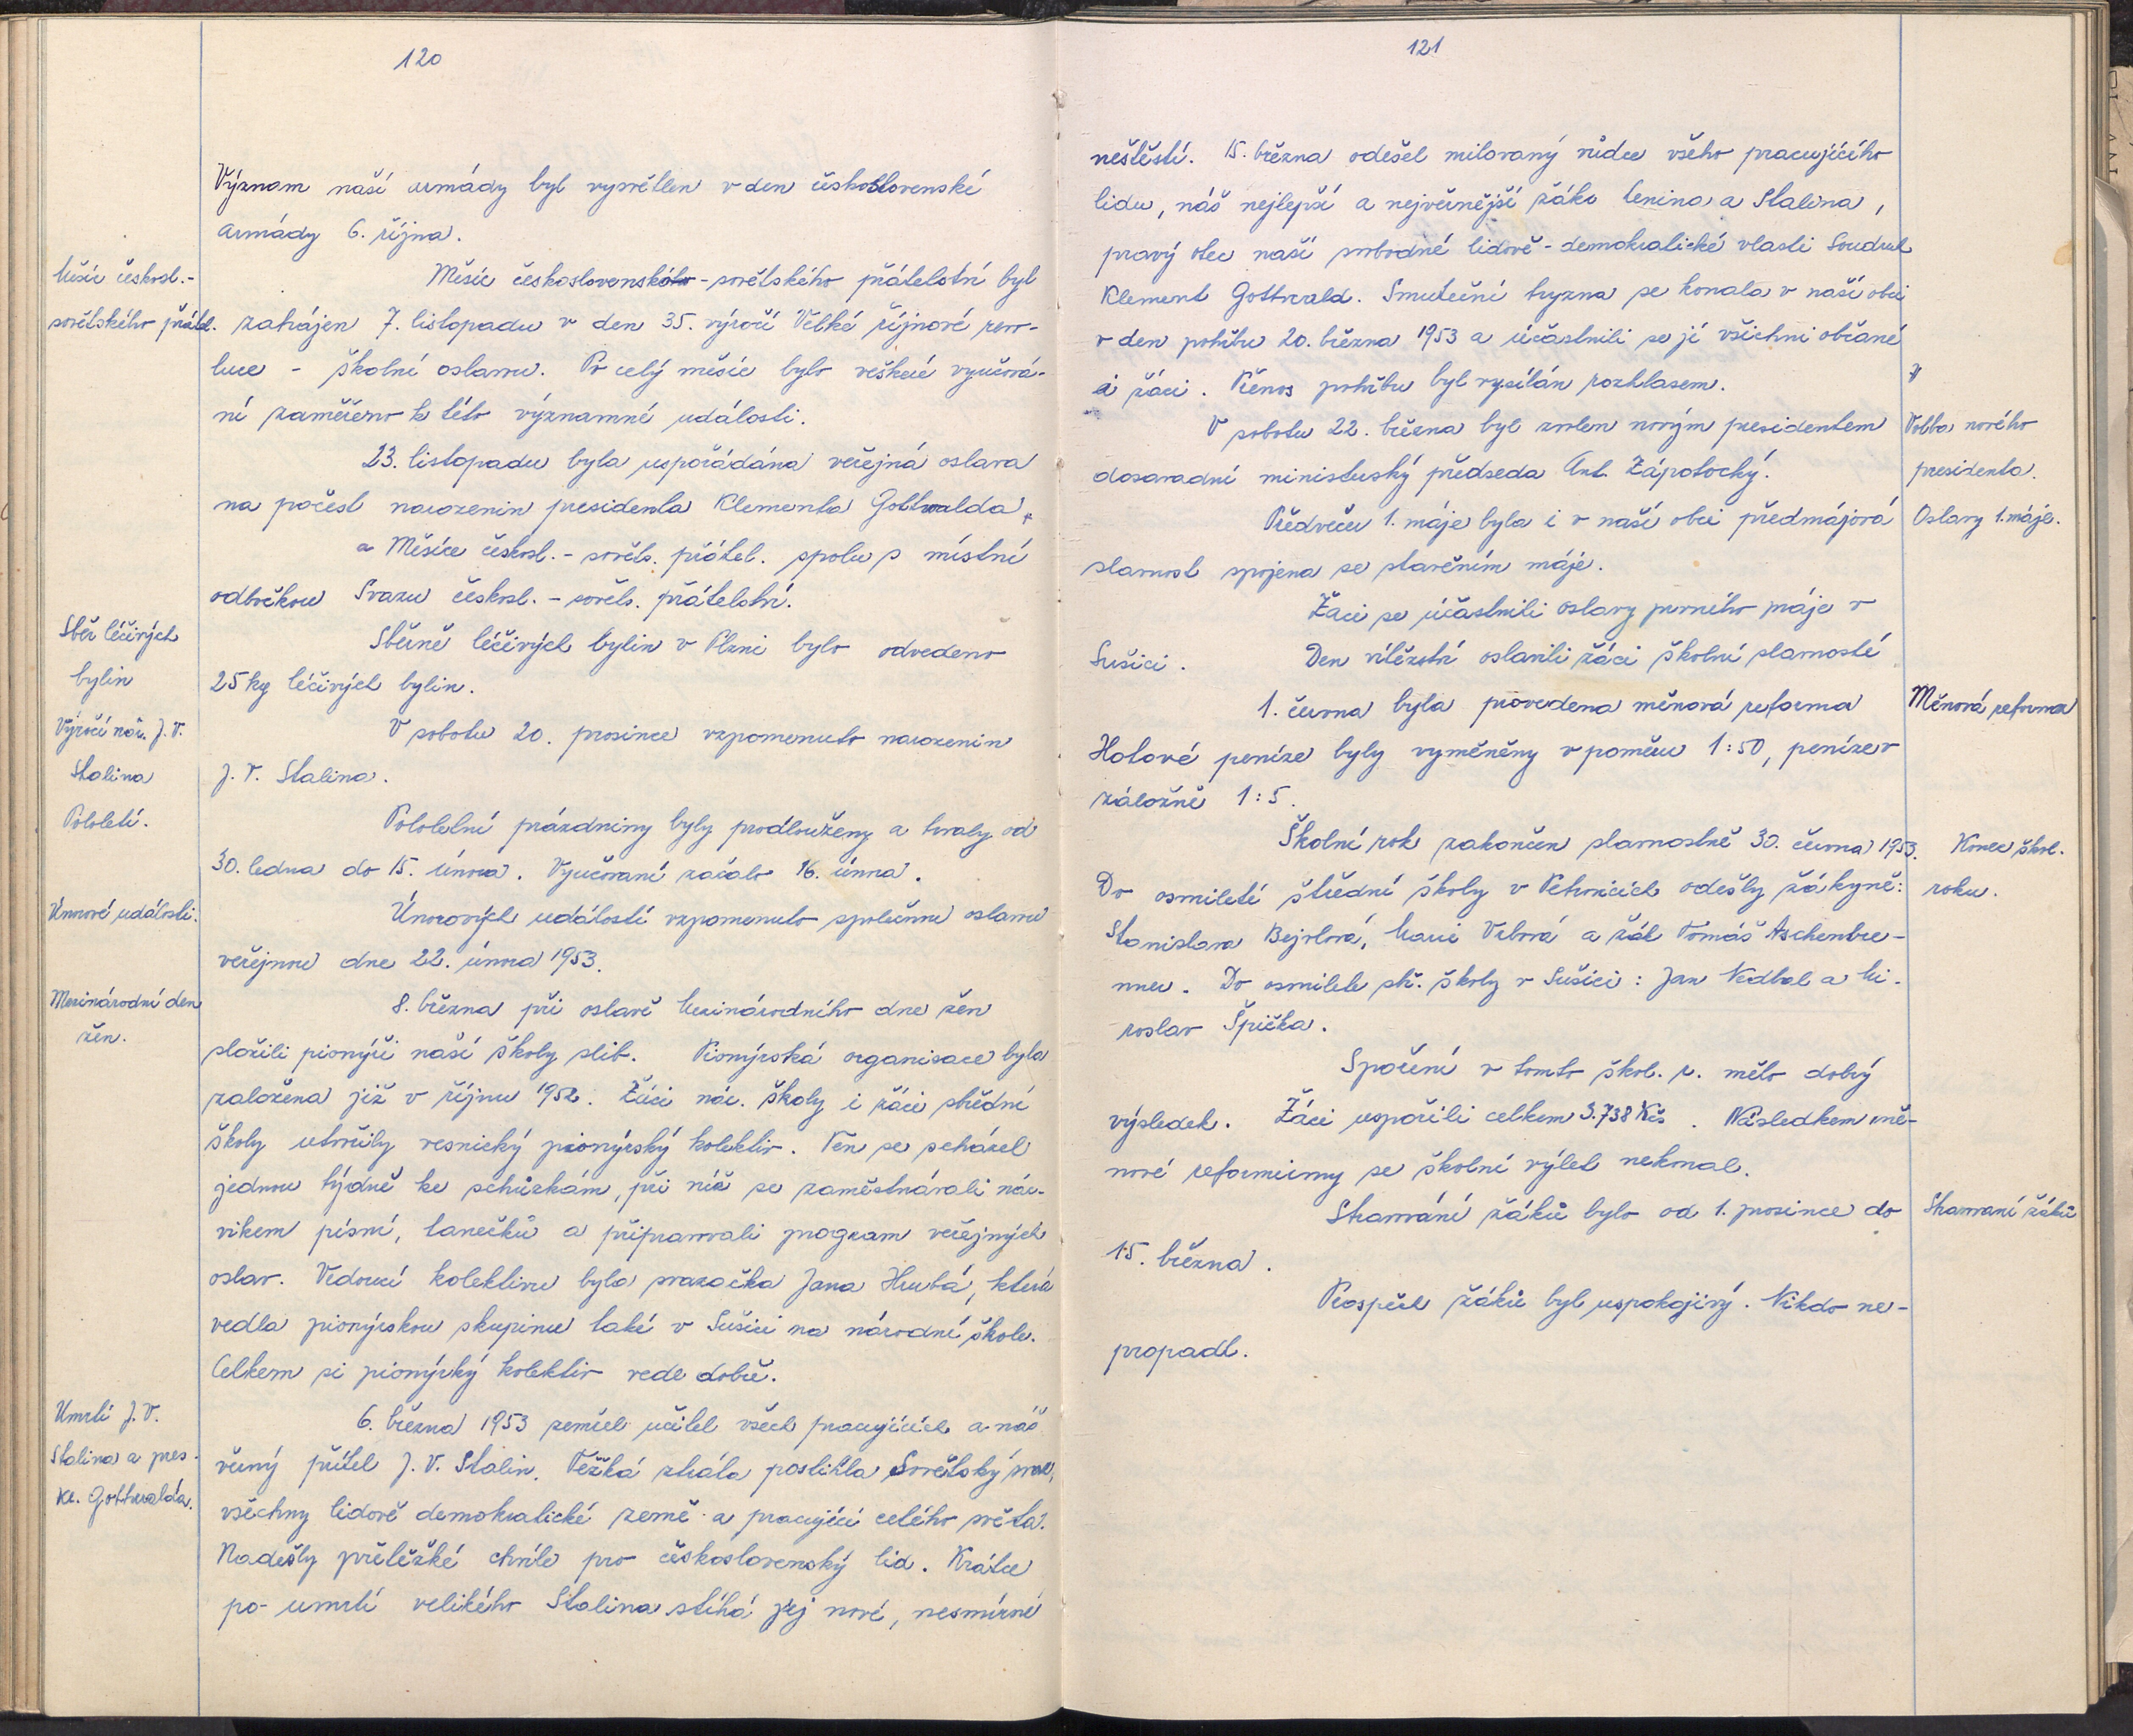 120
Význam naší armády byl vysvětlen v den československé
armády 6. října.
Měsíc českosl.-
sovětského přátel.
Měsíc československo-sovětského přátelství byl
zahájen 7. listopadu v den 35. výročí Velké říjnové revo-
luce - školní oslavou. Po celý měsíc bylo veškeré vyučová-
ní zaměřeno k této významné události.
23. listopadu byla uspořádána veřejná oslava
na počest narozenin presidenta Klementa Gottwalda,
a Měsíce českosl.- sověts. přátel. spolu s místní
odbočkou Svazu českosl. - sověts. přátelství.
Sběr léčivých
bylin
Sběrně léčivých bylin v Plzni bylo odvedeno
25 kg léčivých bylin.
Výročí nar. J. V.
Stalina
V sobotu 20. prosince vzpomenuto narozenin
J. V. Stalina.
Pololetí.
Pololetní prázdniny byly prodlouženy a trvaly od
30. ledna do 15. února. Vyučovaní začalo 16. února.
Únorové události.
Únorových událostí vzpomenuto společnou oslavou
veřejnou dne 22. února 1953.
Mezinárodní den
žen.
8. března při oslavě Mezinárodního dne žen
složili pionýři naší školy slib. Pionýrská organisace byla
založena již v říjnu 1952. Žáci nár. školy i žáci střední
školy utvořily vesnický pionýrský kolektiv. Ten se scházel
jednou týdně ke schůzkám, při níž se zaměstnávali nác-
vikem písní, tanečků a připravovali program veřejných
oslav. Vedoucí kolektivu byla svazačka Jana Hrubá, která
vedla pionýrskou skupinu také v Sušici na národní škole.
Celkem si pionýrký kolektiv vede dobře.
Umrtí J. V.
Stalina a pres.
Kl. Gottwalda.
6. března 1953 zemřel učitel všech pracujících a náš
věrný přítel J. V. Stalin. Těžká ztráta postihla Sovětský svaz,
všechny lidově demokratické země a pracující celého světa.
Nadešly přetěžké chvíle pro československý lid. Krátce
po umrtí velikého Stalina stíhá jej nové, nesmírné
121
neštěstí. 15. března odešel milovaný vůdce všeho pracujícího
lidu, náš nejlepší a nejvěrnější žák Lenina a Stalina,
pravý otec naší svobodné lidově-demokratické vlasti Soudruh
Klement Gottwald. Smuteční tryzna se konala v naší obci
v den pohřbu 20. března 1953 a účastnili se jí všichni občané
i žáci. Přenos pohřbu byl vysílán rozhlasem.
V sobotu 22. března byl zvolen novým presidentem
dosavadní ministerský předseda Ant. Zápotocký.
Volba nového
presidenta.
Předvečer 1. máje byla i v naší obci předmájová
slavnost spojena se stavěním máje.
Oslavy 1. máje.
Žáci se účastnili oslavy prvního máje v
Sušici. Den vítězství oslavili žáci školní slavností
1. června byla provedena měnová reforma
Měnová reforma
Hotové peníze byly vyměněny v poměru 1:50, peníze v
záložně 1:5.
Školní rok zakončen slavnostně 30. června 1953.
Konec škol.
roku.
Do osmileté střední školy v Petrovicích odešly žákyně:
Stanislava Bejvlová, Marie Vrbová a žák Tomáš Aschenbre-
nner. Do osmileté stř. školy v Sušici: Jan Nedbal a Mi-
roslav Špička.
Spoření v tomto škol. r. mělo dobrý
výsledek. Žáci uspořili celkem 3.738 Kčs. Následkem mě-
nové reformy se školní výlet nekonal.
Stravování žáků bylo od 1. prosince do
15. března.
Stravování žáků
Prospěch žáků byl uspokojivý. Nikdo ne-
propadl.